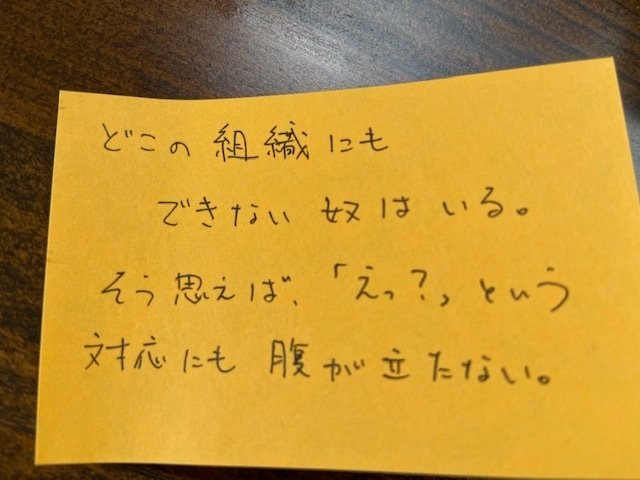 どこの組織にも
できない奴はいる。
そう思えば、「えっ?」という
対応にも腹が立たない。